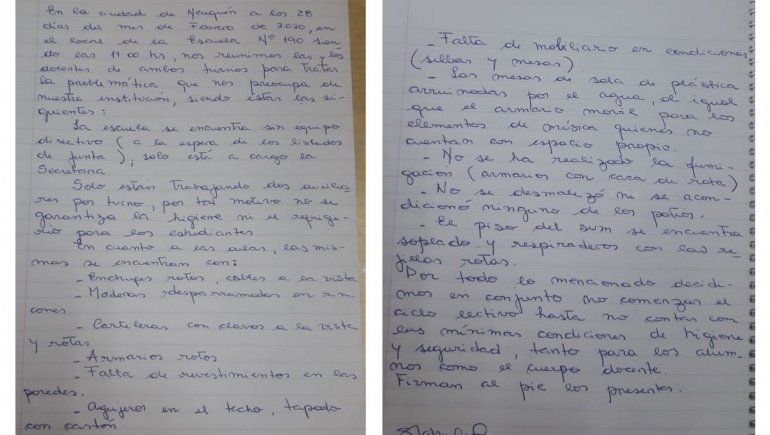 En la ciudad de Neuquén a los 28
días del mes de Febrero de 2020, en
el local de la Escuela Nº 190 sien-
do las 11:00 hs, nos reunimos las y los
docentes de ambos turnos para tratar
la problemática que nos preocupa de
nuestra institución, siendo estas las si-
guientes:
La escuela se encuentra sin equipo
directivo (a la espera de los listados
de Junta), solo está a cargo la
Secretaria.
Solo están trabajando dos auxilia-
res por turno, por tal motivo no se
garantiza la higiene ni el refrige-
rio para los estudiantes.
En cuanto a las aulas, las mis-
mas se encuentran con:
- Enchufes rotos, cables a la vista
- Maderas desparramadas en rin-
cones.
- Carteleras con clavos a la vista
y rotas.
- Armarios rotos
- Falta de revestimientos en las
paredes.
- Agujeros en el techo, tapado
con cartón.
- Falta de mobiliario en condiciones
(sillas y mesas)
- Las mesas de sala de plástica
arruinadas por el agua, al igual
que el armario movil para los
elementos de música quienes no
cuentan con espacio propio.
- No se ha realizado la fumi-
gación (armarios con caca de rata)
- No se desmalezó ni se acon-
dicionó ninguno de los patios.
- El piso del sum se encuentra
soplado y respiraderos con las re-
jillas rotas.
Por todo lo mencionado decidi-
mos en conjunto no comenzar el
ciclo lectivo hasta no contar con
las mínimas condiciones de higiene
y seguridad, tanto para los alum-
nos como el cuerpo docente.
Firman al pie los presentes.